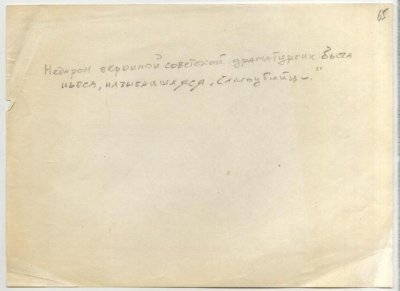 65
Недаром героиной советской драматургии была
пьеса, называвшаяся „